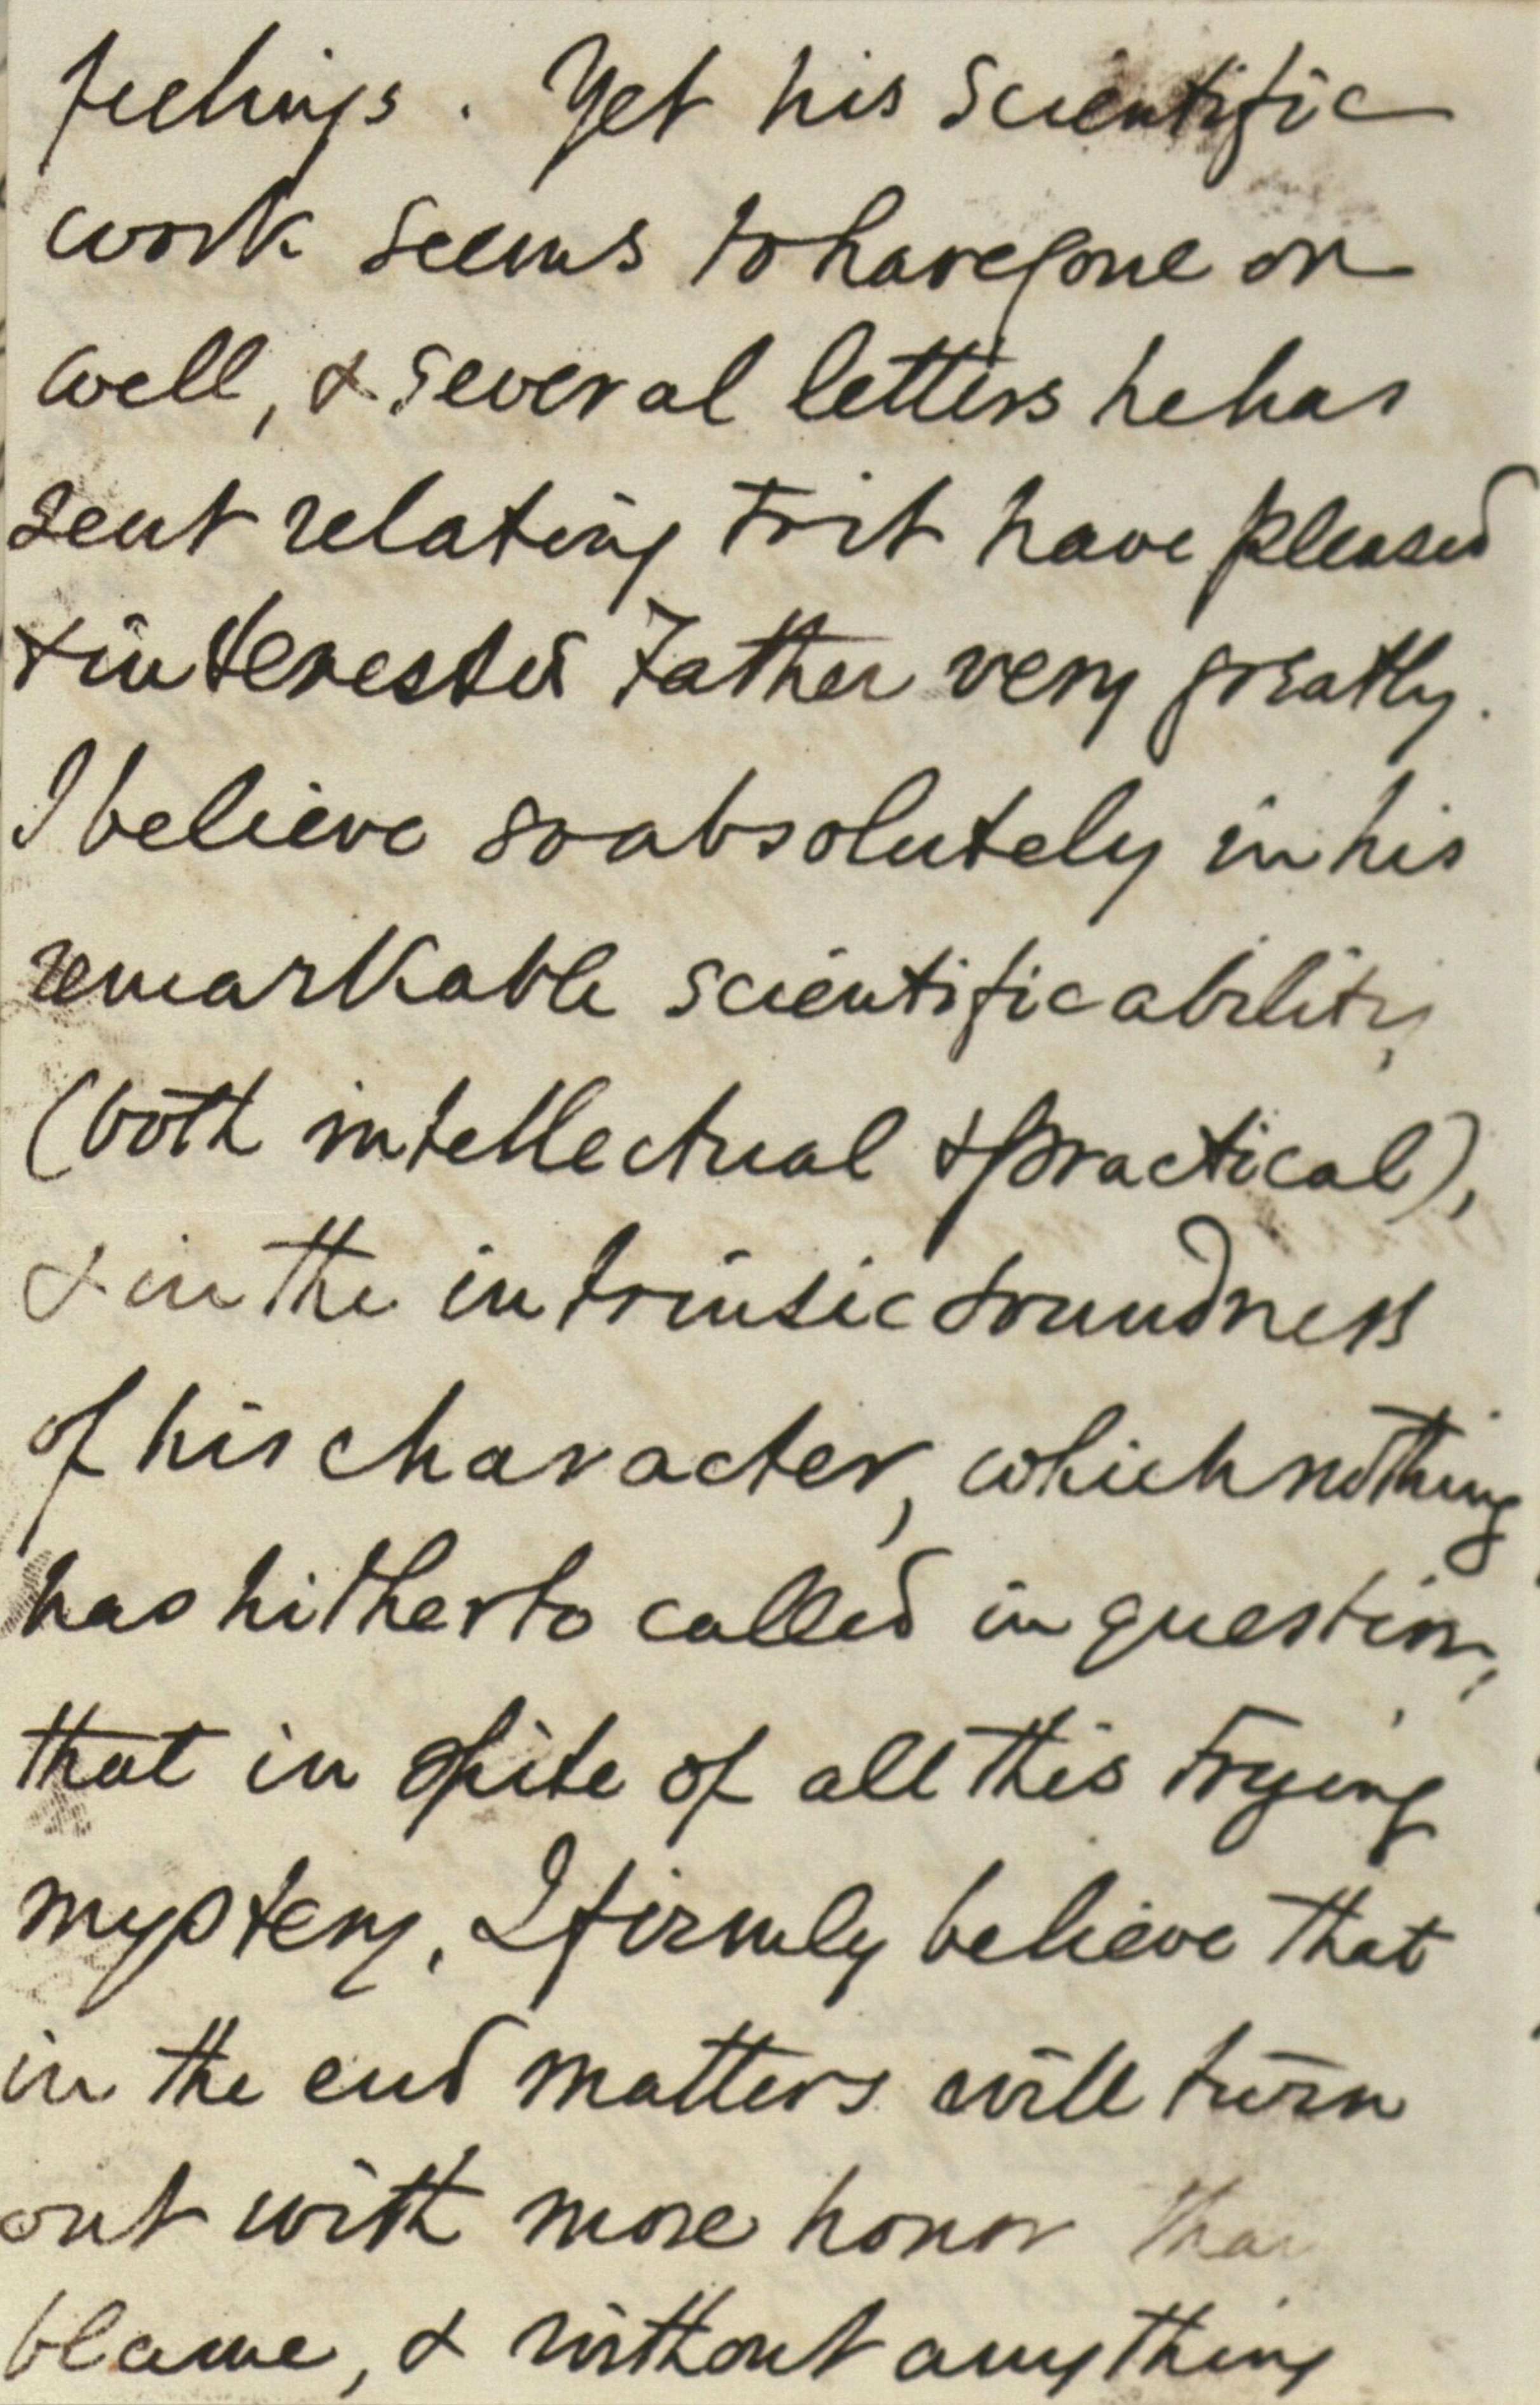 feelings. Yet his scientific
work seems to have gone on
well, & several letters he has
sent relating to it have pleased
& interested Father very greatly.
I believe so absolutely in his
remarkable scientific ability,
(both intellectual & practical),
& in the intrinsic soundness
of his character, which nothing
has hitherto called in question,
that in spite of all this trying
mystery, I firmly believe that
in the end matters will turn
out with more honor than
blame, & without anything